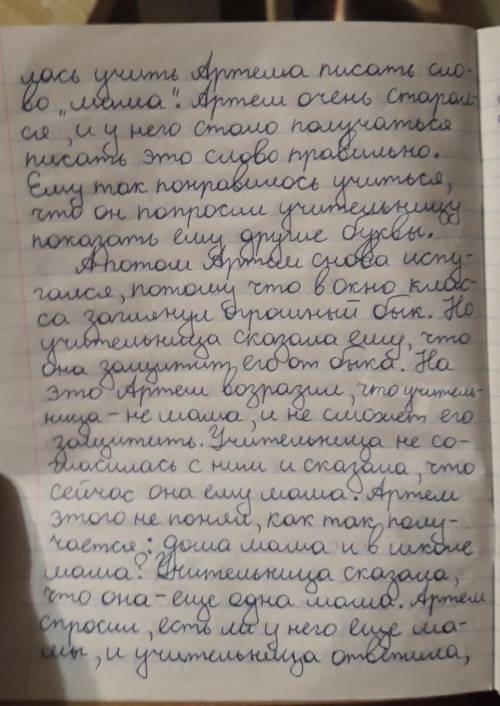 лась учить Артема писать сло-
во „мама". Артем очень старал-
ся, и у него стало получаться
писать это слово правильно.
Ему так понравилось учиться,
что он попросил учительницу
показать ему другие буквы.
А потом Артем снова испу-
гался, потому что в окно клас-
са заглянул страшный бык. Но
учительница сказала ему, что
она защитит его от быка. На
это Артем возразил, что учитель-
ница - не мама, и не сможет его
защитить. Учительница не со-
гласилась с ним и сказала, что
сейчас она ему мама. Артем
этого не понял, как так, полу-
чается: дома мама и в школе
мама? Учительница сказала,
что она - еще одна мама. Артем
спросил, есть ли у него еще ма-
мы, и учительница ответила,